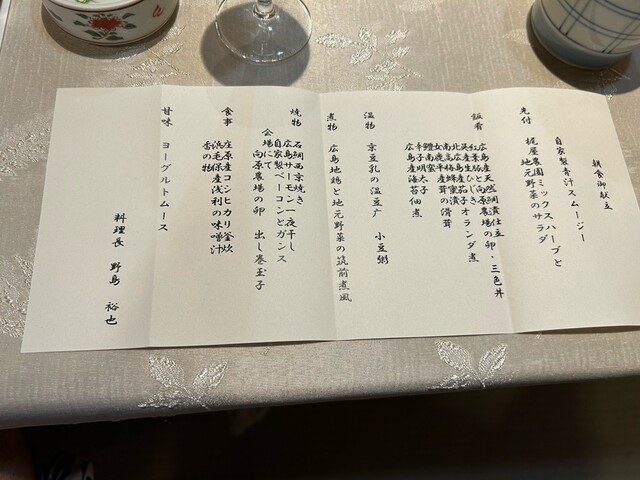 朝食御献立
自家製青汁スムージー
先付
梶屋農園ミックスハーブと
地元野菜のサラダ
飯肴
広島産天然鯛漬仕立
紅葉豚と向原農場の卵・三色丼
英芋生ひじき
北広島産茄子オランダ煮
南高梅蜂蜜漬
女鹿平産茸の滑茸
鱧南蛮
辛子明太子
広島産海苔佃煮
温物
京豆乳の温豆腐 小豆粥
煮物
広島地鶏と地元野菜の筑前煮風
焼物
石鯛西京焼き
広島サーモン一夜干し
自家製ベーコンとガンス
会場にて
向原農場の卵 出し巻玉子
食事
庄原産コシヒカリ釜炊
浜毛保産浅利の味噌汁
香の物
甘味
ヨーグルトムース
料理長 野島 裕也